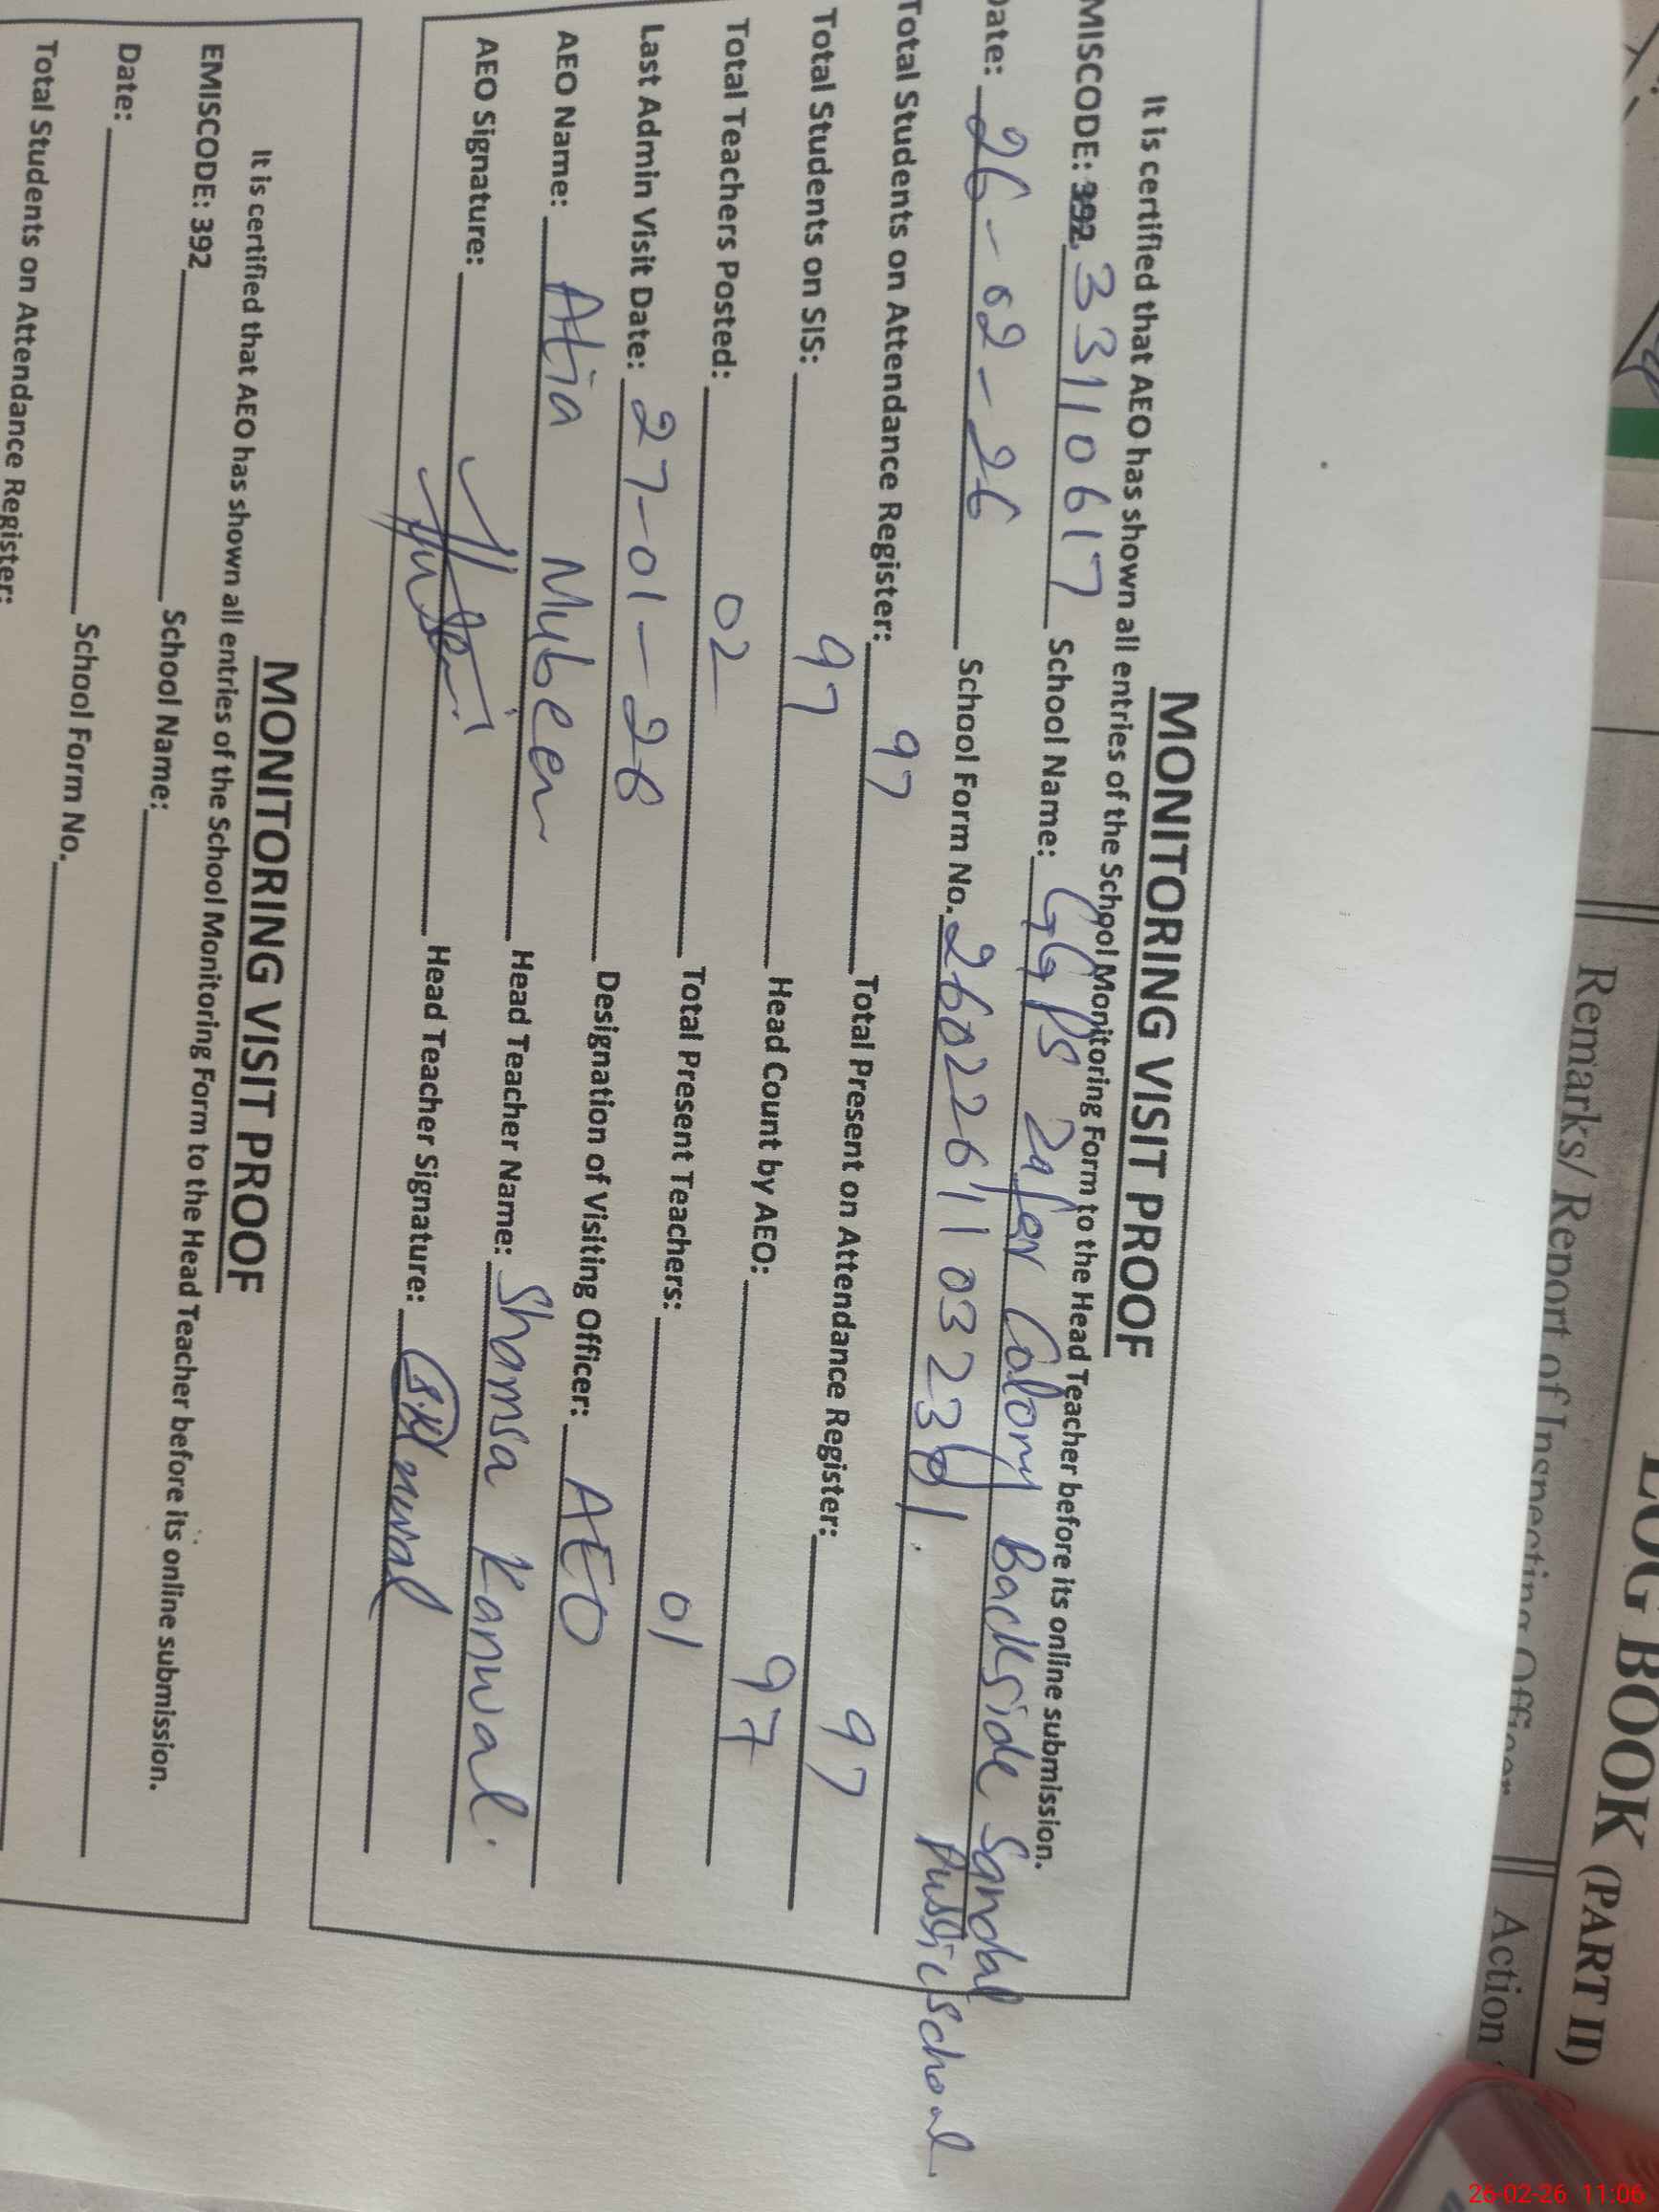 LOG BOOK (PART II)
Remarks/ Report of Inspecting Officer
Action
MONITORING VISIT PROOF
It is certified that AEO has shown all entries of the School Monitoring Form to the Head Teacher before its online submission.
MISCODE: 392 33110617 School Name: GGPS Zafar Colony Backside Sandal
Date: 26-02-26 School Form No. 26022611032331.
School
Total Students on Attendance Register: 97 Total Present on Attendance Register: 97
Total Students on SIS: 97 Head Count by AEO: 97
Total Teachers Posted: 02 Total Present Teachers: 01
Last Admin Visit Date: 27-01-26 Designation of Visiting Officer: AEO
AEO Name: Atia Mubeen Head Teacher Name: Shamsa Kanwal.
AEO Signature: Head Teacher Signature:
MONITORING VISIT PROOF
It is certified that AEO has shown all entries of the School Monitoring Form to the Head Teacher before its online submission.
EMISCODE: 392 School Name:
Date: School Form No.
Total Students on Attendance Register:
26-02-26 11:06